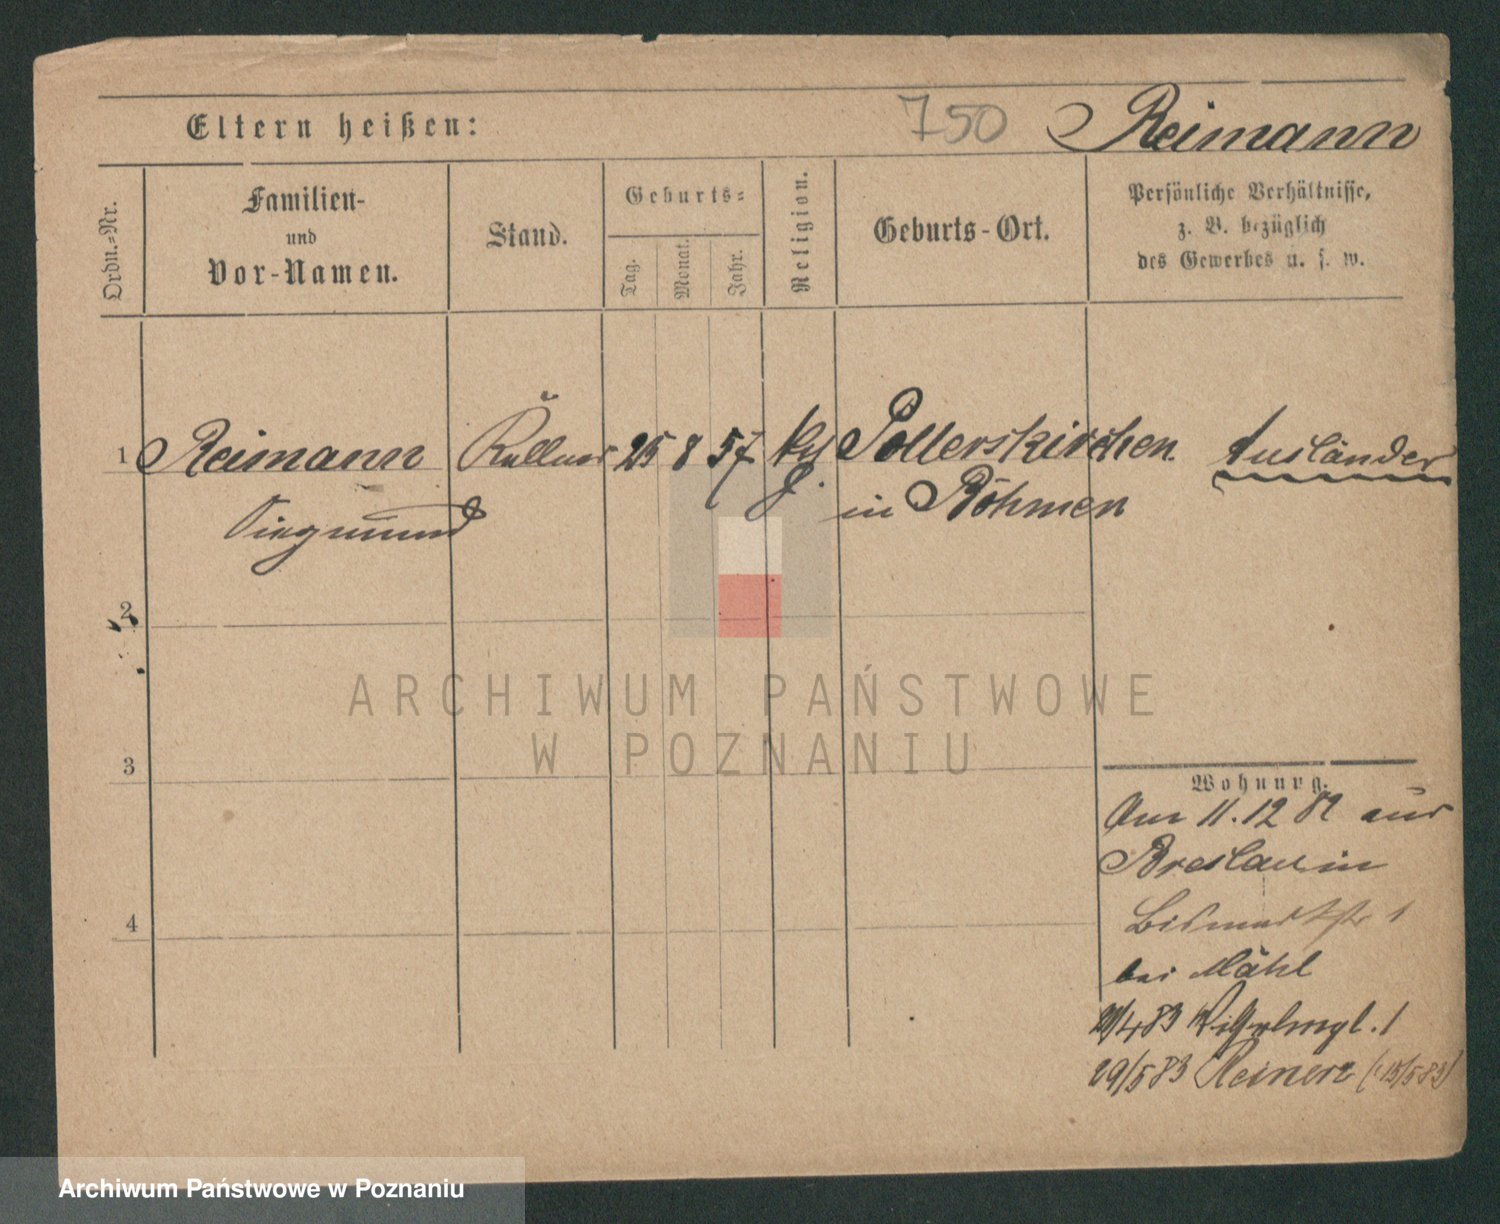 Eltern heißen:
750
Reimann
Ordn.-Nr.
Familien-
und
Vor-Namen.
Stand.
Geburts-
Tag.
Monat.
Jahr.
Religion.
Geburts-Ort.
Persönliche Verhältnisse,
z. B. bezüglich
des Gewerbes u. s. w.
1 Reimann Kellner 25 8 57 Pollerskirchen Ausländer
Siegmund in Böhmen
2
ARCHIWUM PAŃSTWOWE
W POZNANIU
3
Wohnung.
Am 11.12 82 aus
Breslau in
Bismarkstr 1
bei Mähl
4
/4 83 Wilhelmspl. 1
29/5 83 Reinerz (15/5 83)
Archiwum Państwowe w Poznaniu